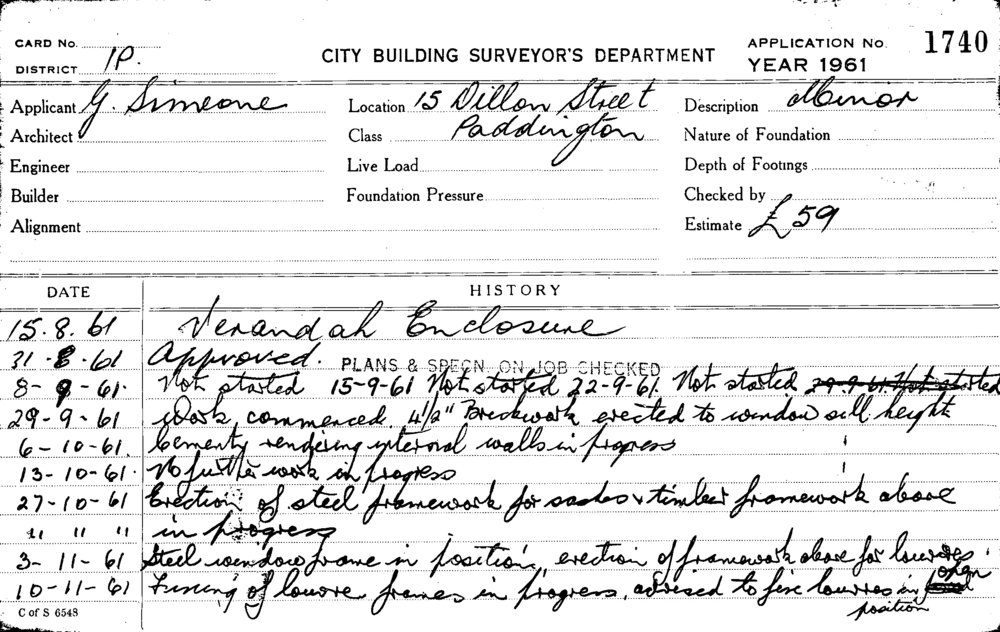 CARD No.
DISTRICT 1P.
CITY BUILDING SURVEYOR'S DEPARTMENT
APPLICATION No. 1740
YEAR 1961
Applicant G. Simeone
Location 15 Dillon Street
Description Minor
Architect
Class Paddington
Nature of Foundation
Engineer
Live Load
Depth of Footings
Builder
Foundation Pressure
Checked by
Alignment
Estimate £59
DATE HISTORY
15.8.61 Verandah Enclosure
31-8-61 Approved. PLANS & SPECN. ON JOB CHECKED
8-9-61. Not started 15-9-61 Not started 22-9-61. Not started 29.9.61 Not started
29-9-61 Work commenced 4½" Brickwork erected to window sill height
6-10-61. Cement rendering internal walls in progress
13-10-61. No further work in progress
27-10-61 Erection of steel framework for sashes & timber framework above
" " " in progress
3-11-61 Steel window frame in position, erection of framework above for louvres.
10-11-61 Fixing of louvre frames in progress, advised to fix louvres in open
position
C of S 6548